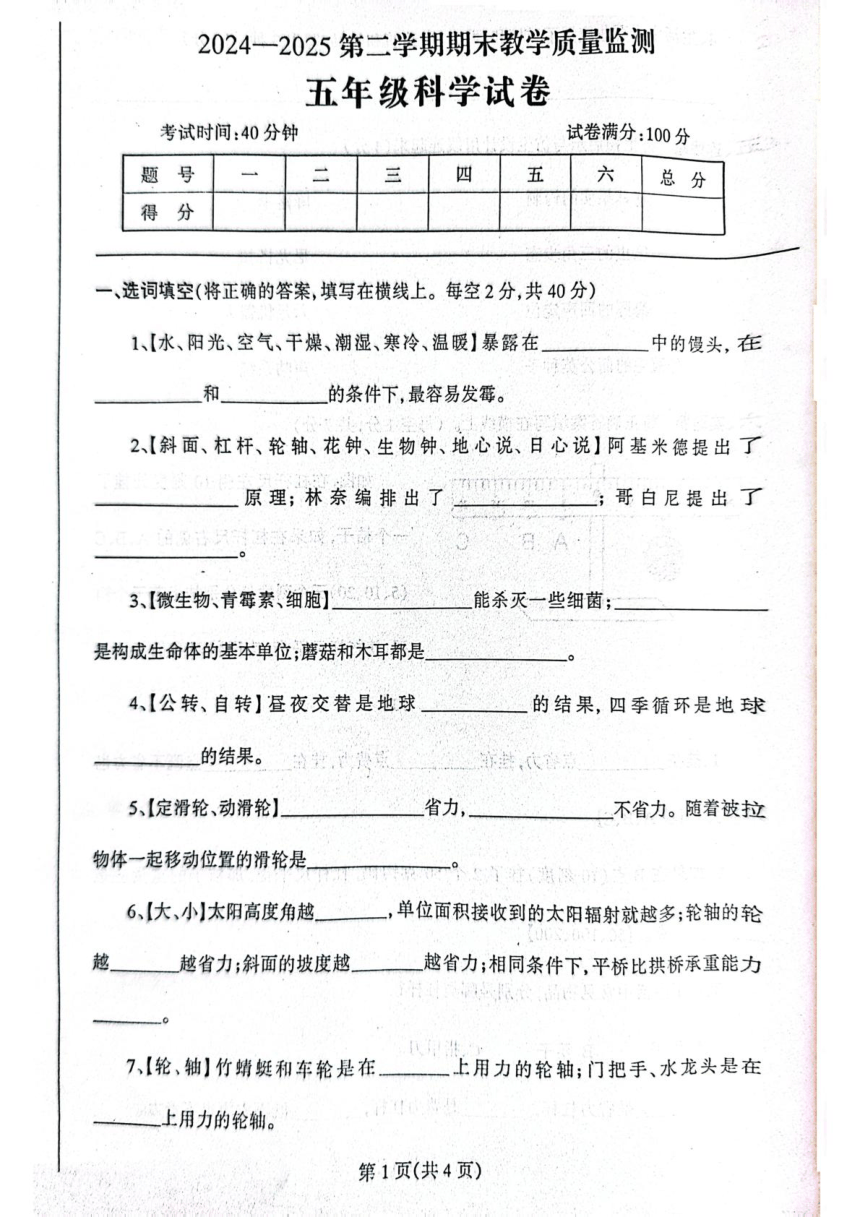 2024—2025第二学期期末教学质量监测
五年级科学试卷
考试时间:40分钟 试卷满分:100分
题 号 一 二 三 四 五 六 总 分
得 分
一、选词填空(将正确的答案,填写在横线上。每空2分,共40分)
1、【水、阳光、空气、干燥、潮湿、寒冷、温暖】暴露在__________中的馒头,在
__________和__________的条件下,最容易发霉。
2、【斜面、杠杆、轮轴、花钟、生物钟、地心说、日心说】阿基米德提出了
__________原理;林奈编排出了__________;哥白尼提出了
__________。
3、【微生物、青霉素、细胞】__________能杀灭一些细菌;__________
是构成生命体的基本单位;蘑菇和木耳都是__________。
4、【公转、自转】昼夜交替是地球__________的结果,四季循环是地球
__________的结果。
5、【定滑轮、动滑轮】__________省力,__________不省力。随着被拉
物体一起移动位置的滑轮是__________。
6、【大、小】太阳高度角越______,单位面积接收到的太阳辐射就越多;轮轴的轮
越______越省力;斜面的坡度越______越省力;相同条件下,平桥比拱桥承重能力
______。
7、【轮、轴】竹蜻蜓和车轮是在______上用力的轮轴;门把手、水龙头是在
______上用力的轮轴。
第1页(共4页)